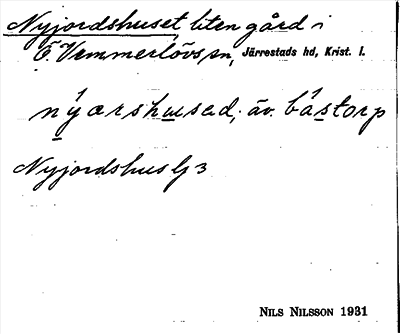 Nyjordshuset, liten gård i
Ö. Vemmerlövs sn, Järrestads hd, Krist. l.
nýarshusəd, äv. båstorp
Nyjordshus G 3
NILS NILSSON 1931